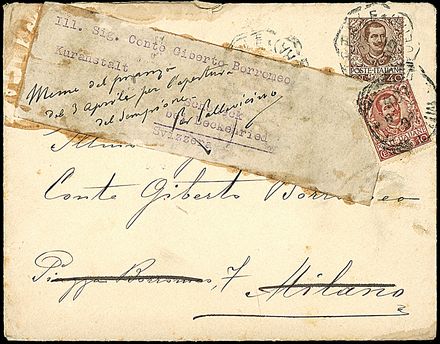 Ill. Sig. Conte Giberto Borromeo
Kuranstalt
Sonneck
bei Beckenried
Svizzera
Menu del pranzo
del 3 Aprile per l'apertura
del Sempione
POSTE ITALIANE
40
10
Conte Giberto Borromeo
Piazza Borromeo, 7 Milano